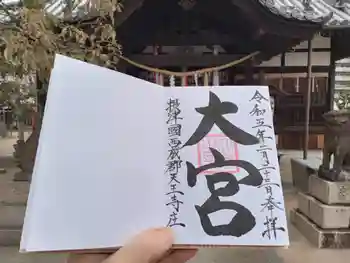 令和五年二月二十三日奉拝
大宮
摂津國西成郡天王寺庄